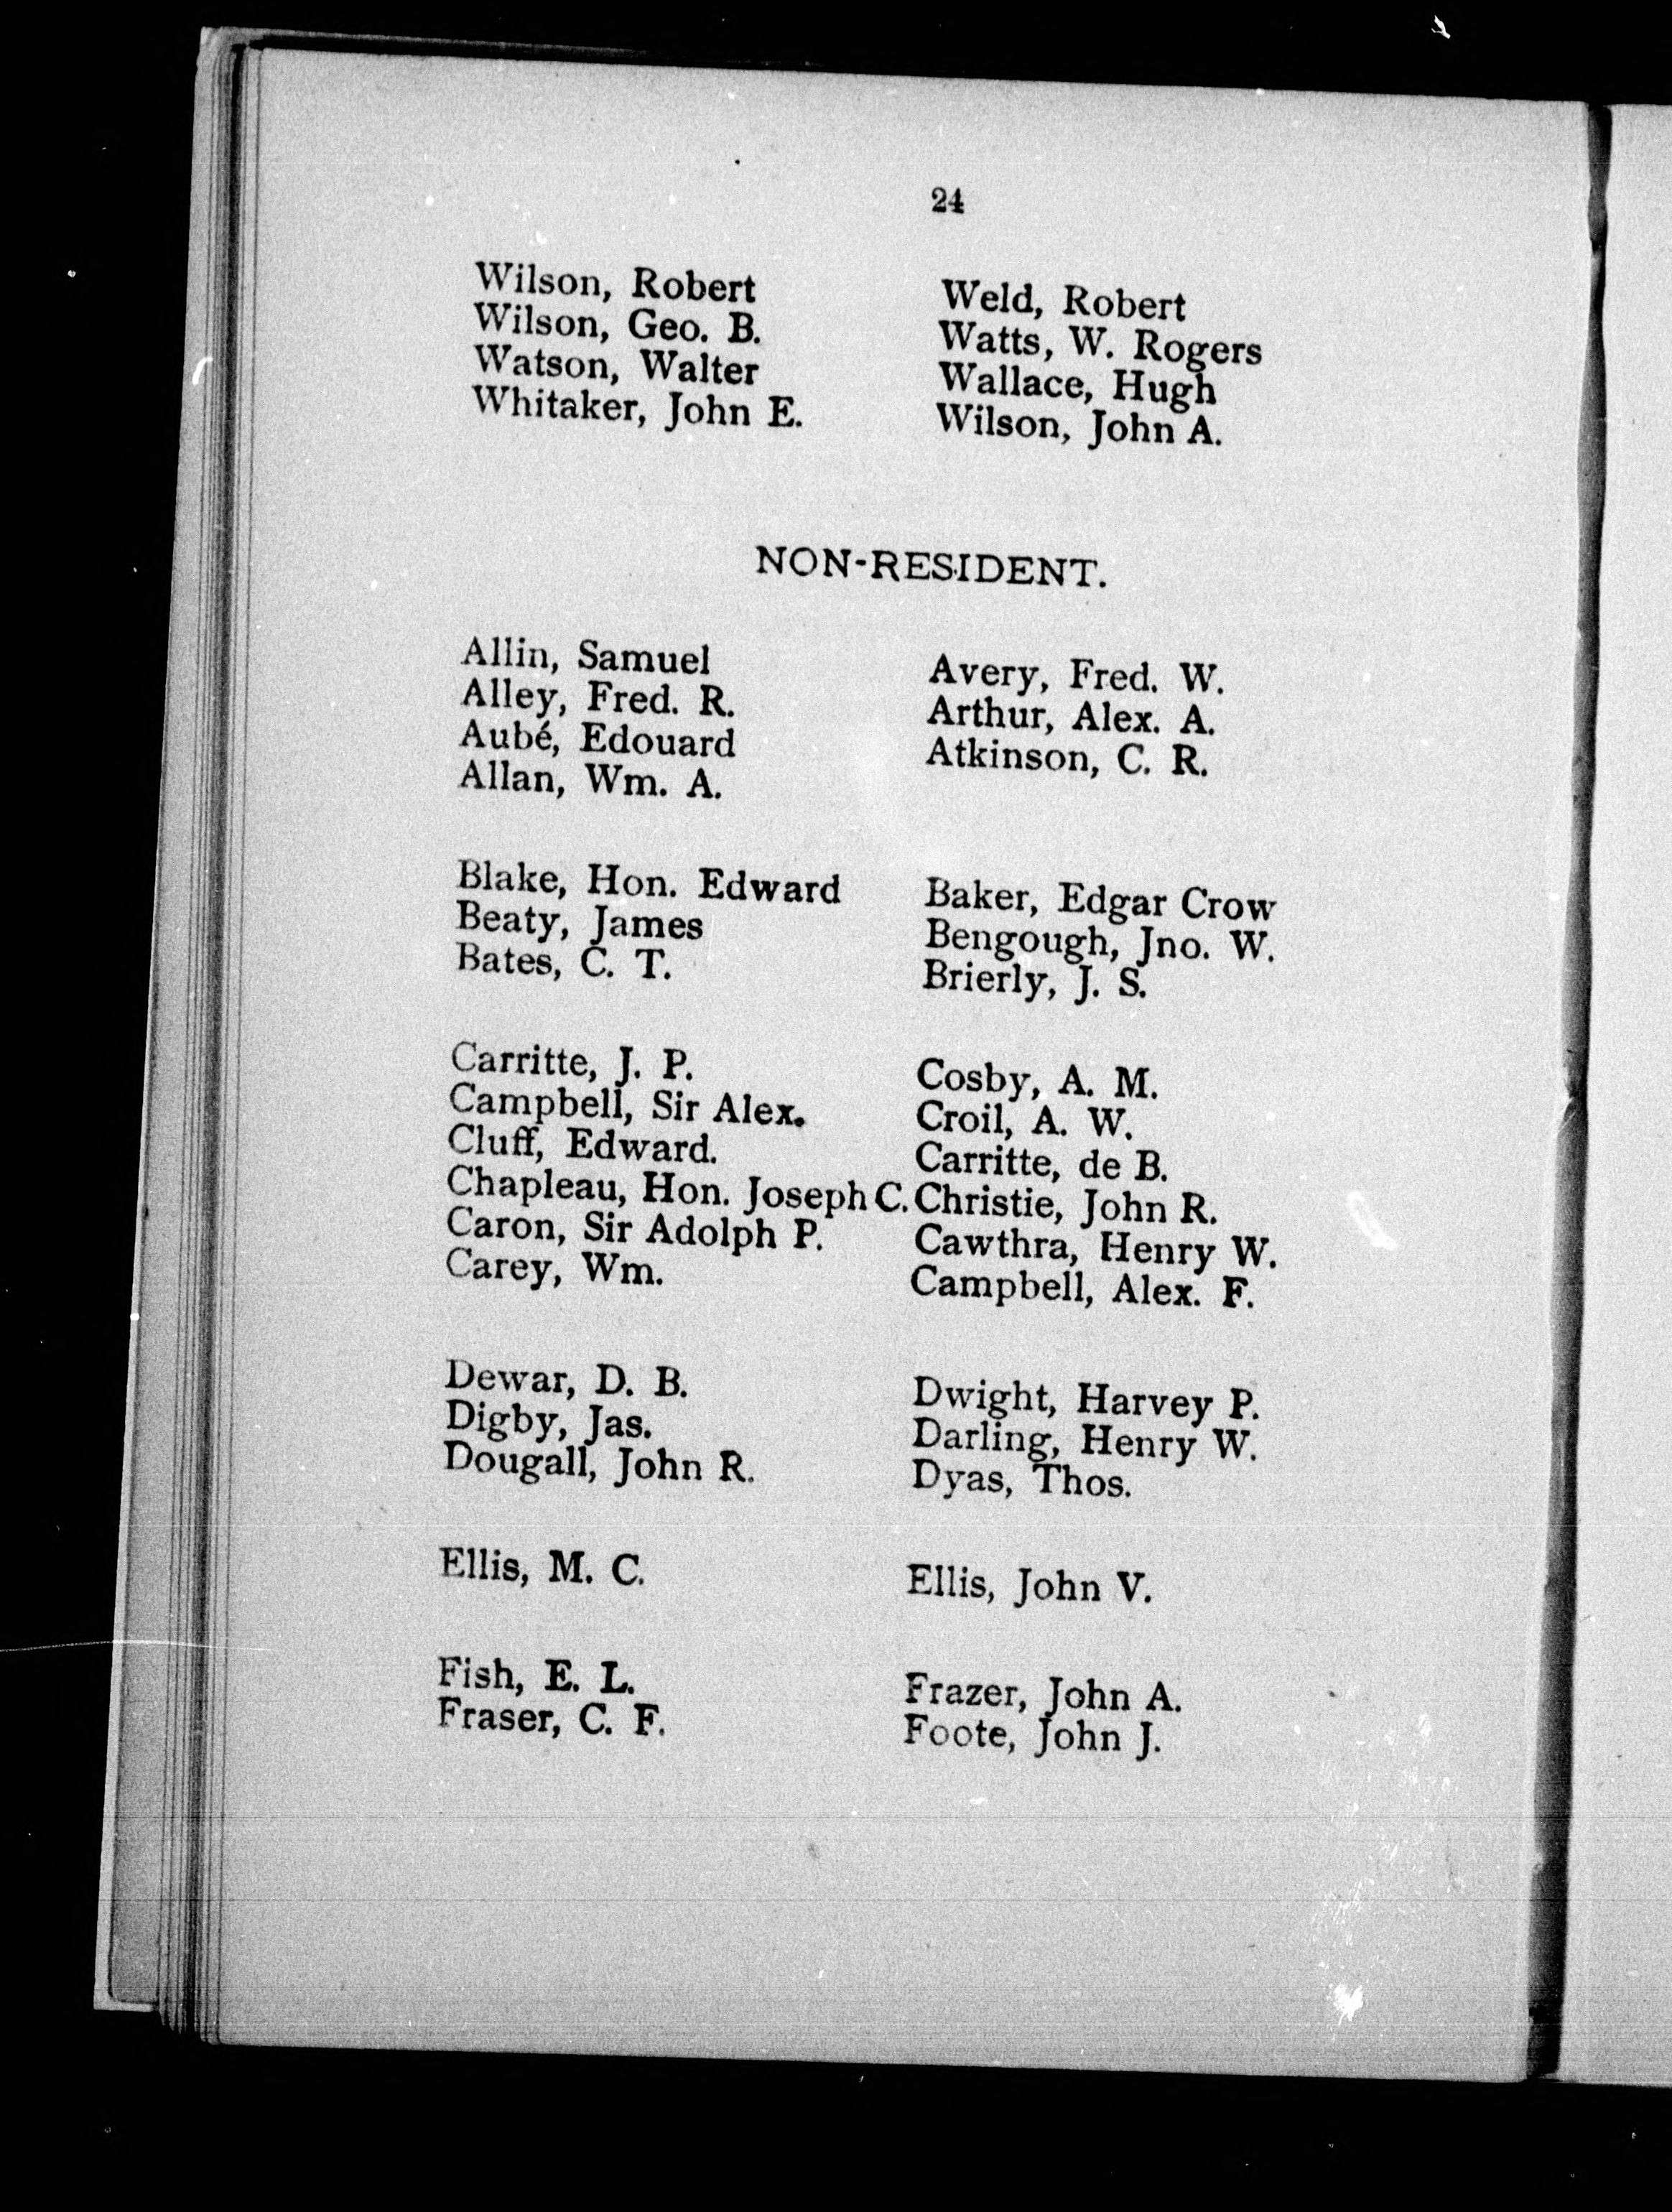 24
Wilson, Robert
Wilson, Geo. B.
Watson, Walter
Whitaker, John E.
Weld, Robert
Watts, W. Rogers
Wallace, Hugh
Wilson, John A.
NON-RESIDENT.
Allin, Samuel
Alley, Fred. R.
Aubé, Edouard
Allan, Wm. A.
Avery, Fred. W.
Arthur, Alex. A.
Atkinson, C. R.
Blake, Hon. Edward
Beaty, James
Bates, C. T.
Baker, Edgar Crow
Bengough, Jno. W.
Brierly, J. S.
Carritte, J. P.
Campbell, Sir Alex.
Cluff, Edward.
Chapleau, Hon. Joseph C.
Caron, Sir Adolph P.
Carey, Wm.
Cosby, A. M.
Croil, A. W.
Carritte, de B.
Christie, John R.
Cawthra, Henry W.
Campbell, Alex. F.
Dewar, D. B.
Digby, Jas.
Dougall, John R.
Dwight, Harvey P.
Darling, Henry W.
Dyas, Thos.
Ellis, M. C.
Ellis, John V.
Fish, E. L.
Fraser, C. F.
Frazer, John A.
Foote, John J.